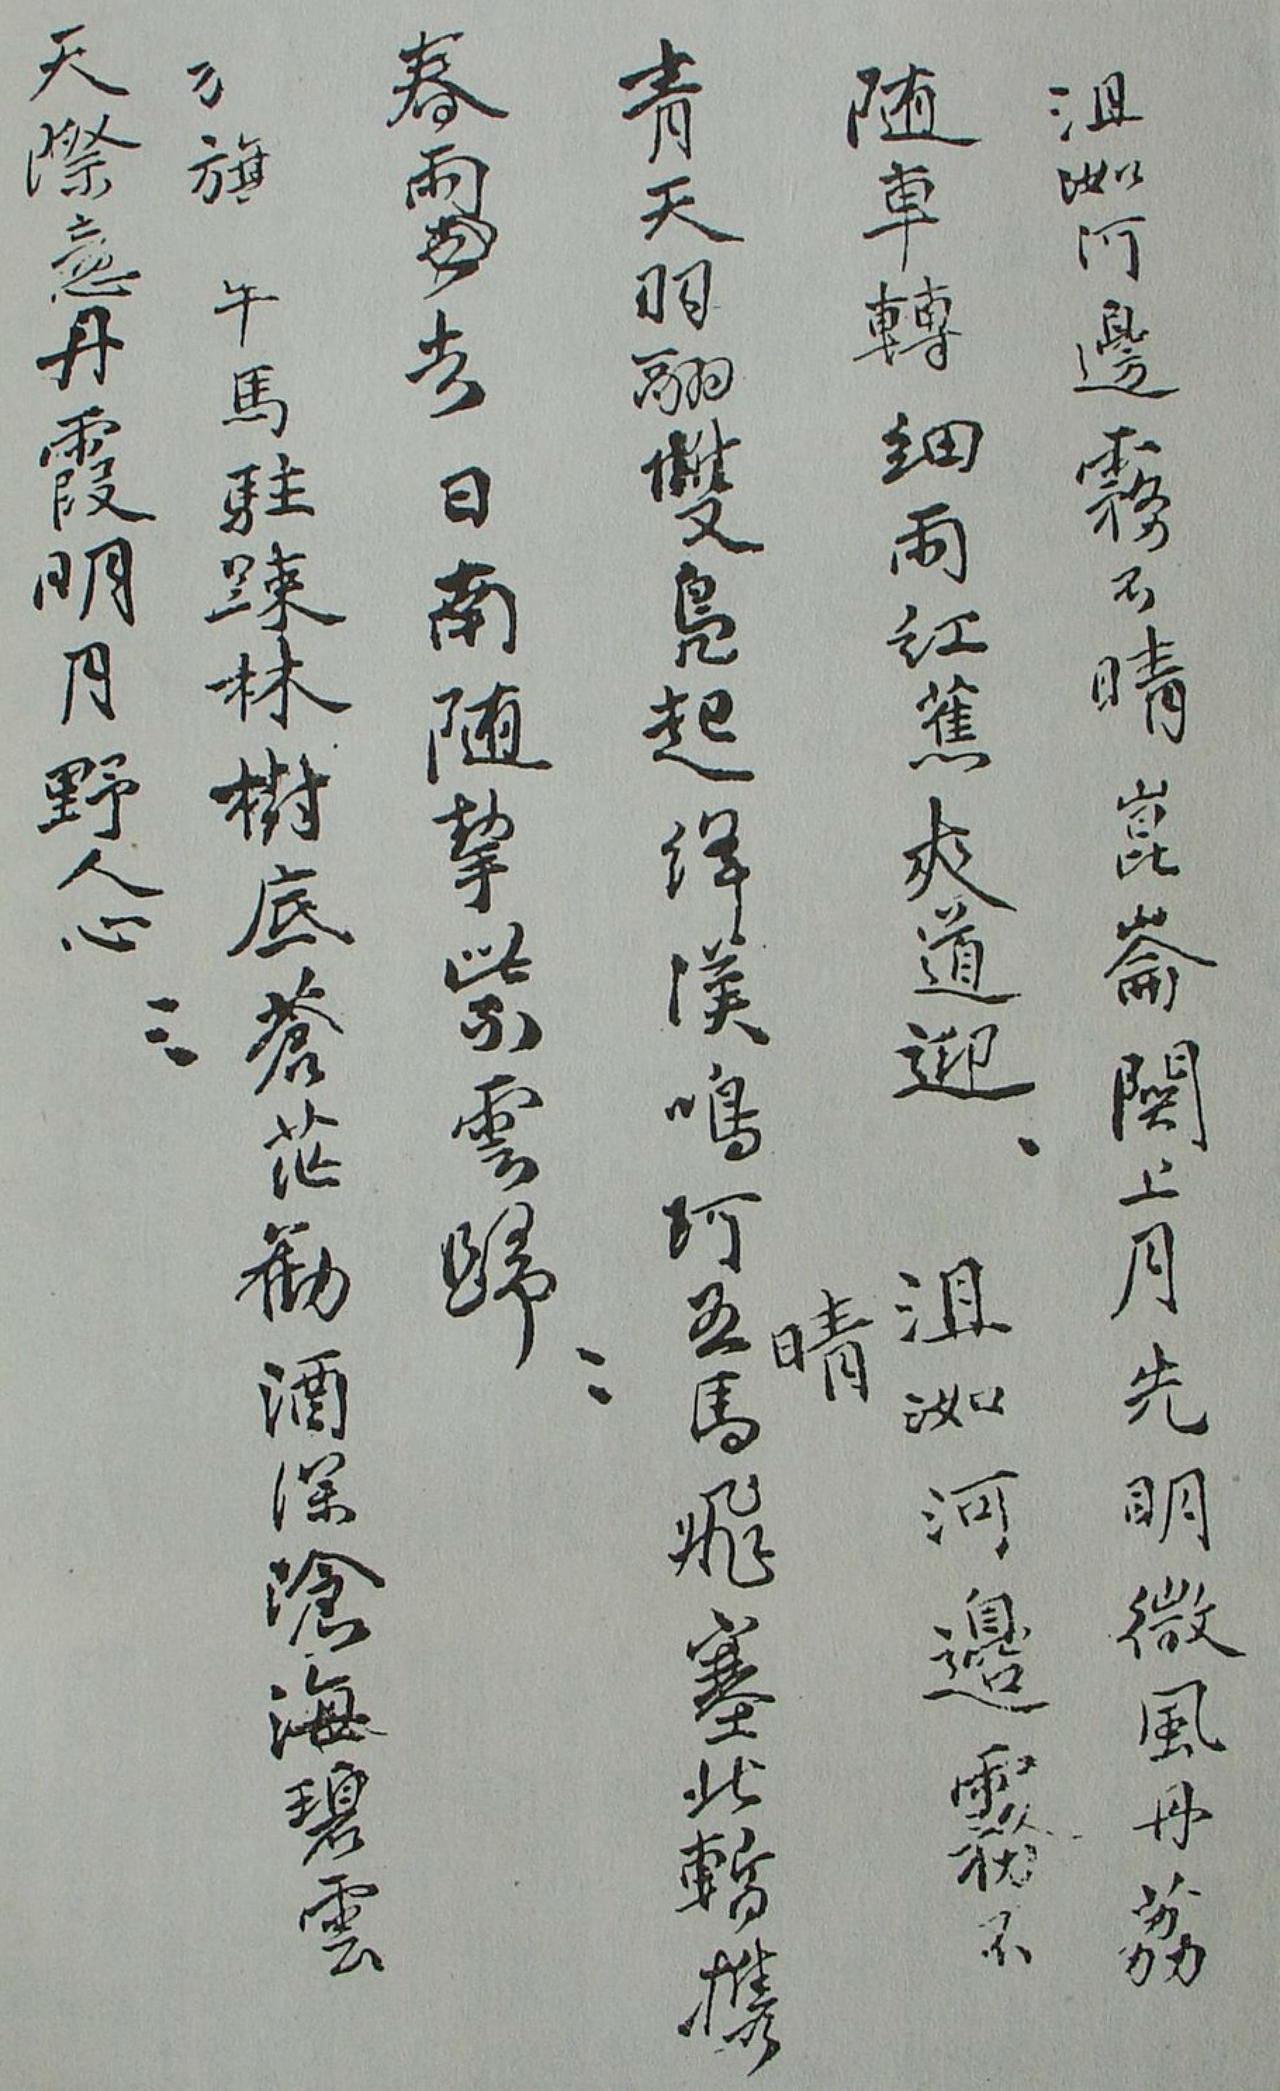 沮洳河邊霧不晴崑崙関上月先明微風丹荔
随車轉細雨紅蕉夾道迎、沮洳河邊霧不
晴
青天羽翮雙鳧起绛漢鳴珂五馬飛塞北暫携
春雨去日南随挈紫雲歸
旗午馬駐踈林樹底蒼茫勸酒深滄海碧雲
天際意丹霞明月野人心